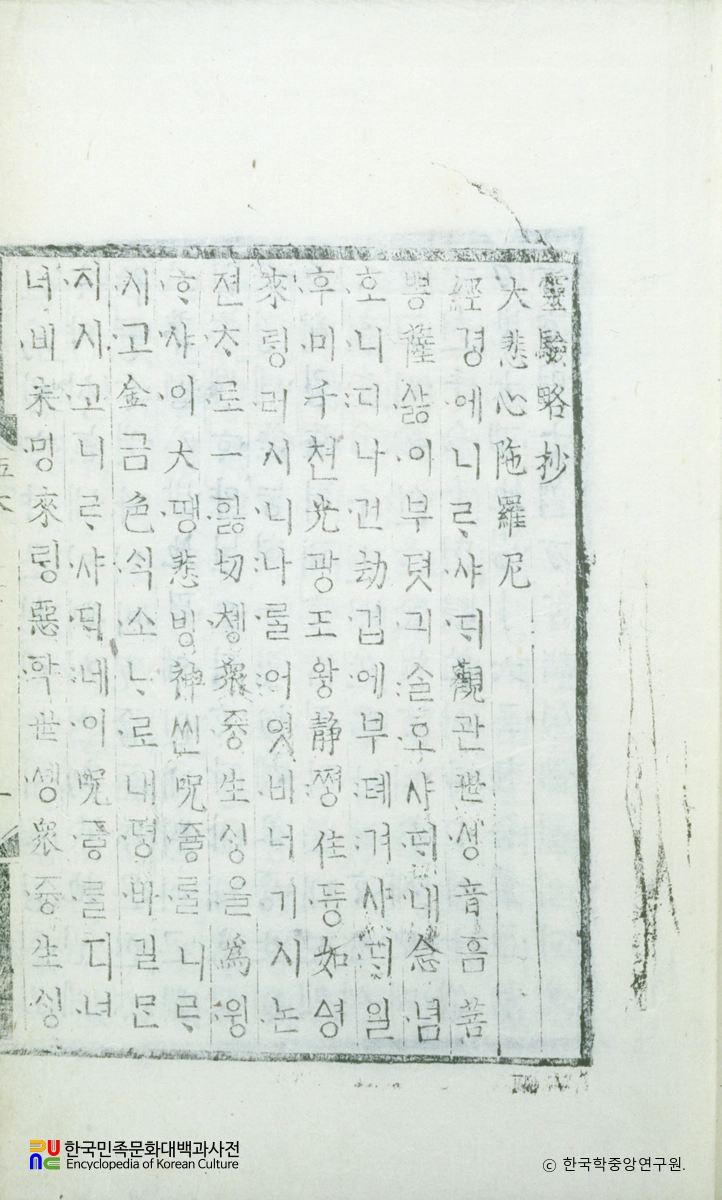 靈驗略抄
大悲心陁羅尼
經경에니ᄅᆞ샤ᄃᆡ觀관世솅音ᅙᅳᆷ菩
뽕薩삻이부텻긔ᄉᆞᆯ오샤ᄃᆡ내念념
호니디나건劫겁에부톄겨샤ᄃᆡ일
후미千쳔光광王왕靜쪙住뜡如ᅀᅧᆼ
來ᄅᆡᆼ러시니나ᄅᆞᆯ어엿비너기시논
젼ᄎᆞ로一ᅙᅵᇙ切촁衆즁生ᄉᆡᆼ을爲윙
ᄒᆞ샤이大땡悲빙神씬呪쥼ᄅᆞᆯ니ᄅᆞ
시고金금色ᄉᆡᆨ소ᄂᆞ로내뎡바길ᄆᆞᆫ
지시고니ᄅᆞ샤ᄃᆡ네이呪쥼ᄅᆞᆯ디녀
너비未밍來ᄅᆡᆼ惡ᅙᅡᆨ世솅衆즁生ᄉᆡᆼ
한국민족문화대백과사전
Encyclopedia of Korean Culture
ⓒ 한국학중앙연구원.